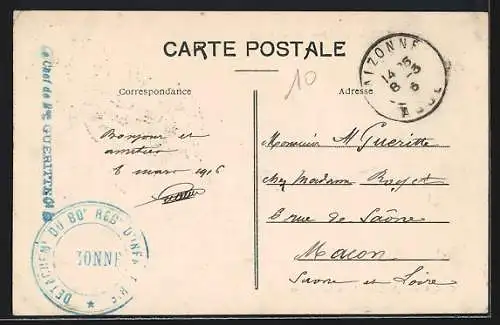 CARTE POSTALE
10
Correspondance
Adresse
Bonjour et
amitiés
6 mars 1916
Monsieur M Gueritte
chez Madame Royet
rue de Saône
Macon
Saone et Loire
IZONNE
14
8
AUDE
Chef de
GUERITTE
DETACHEMENT DU 80e REGt D'INFANTERIE
ZONNE